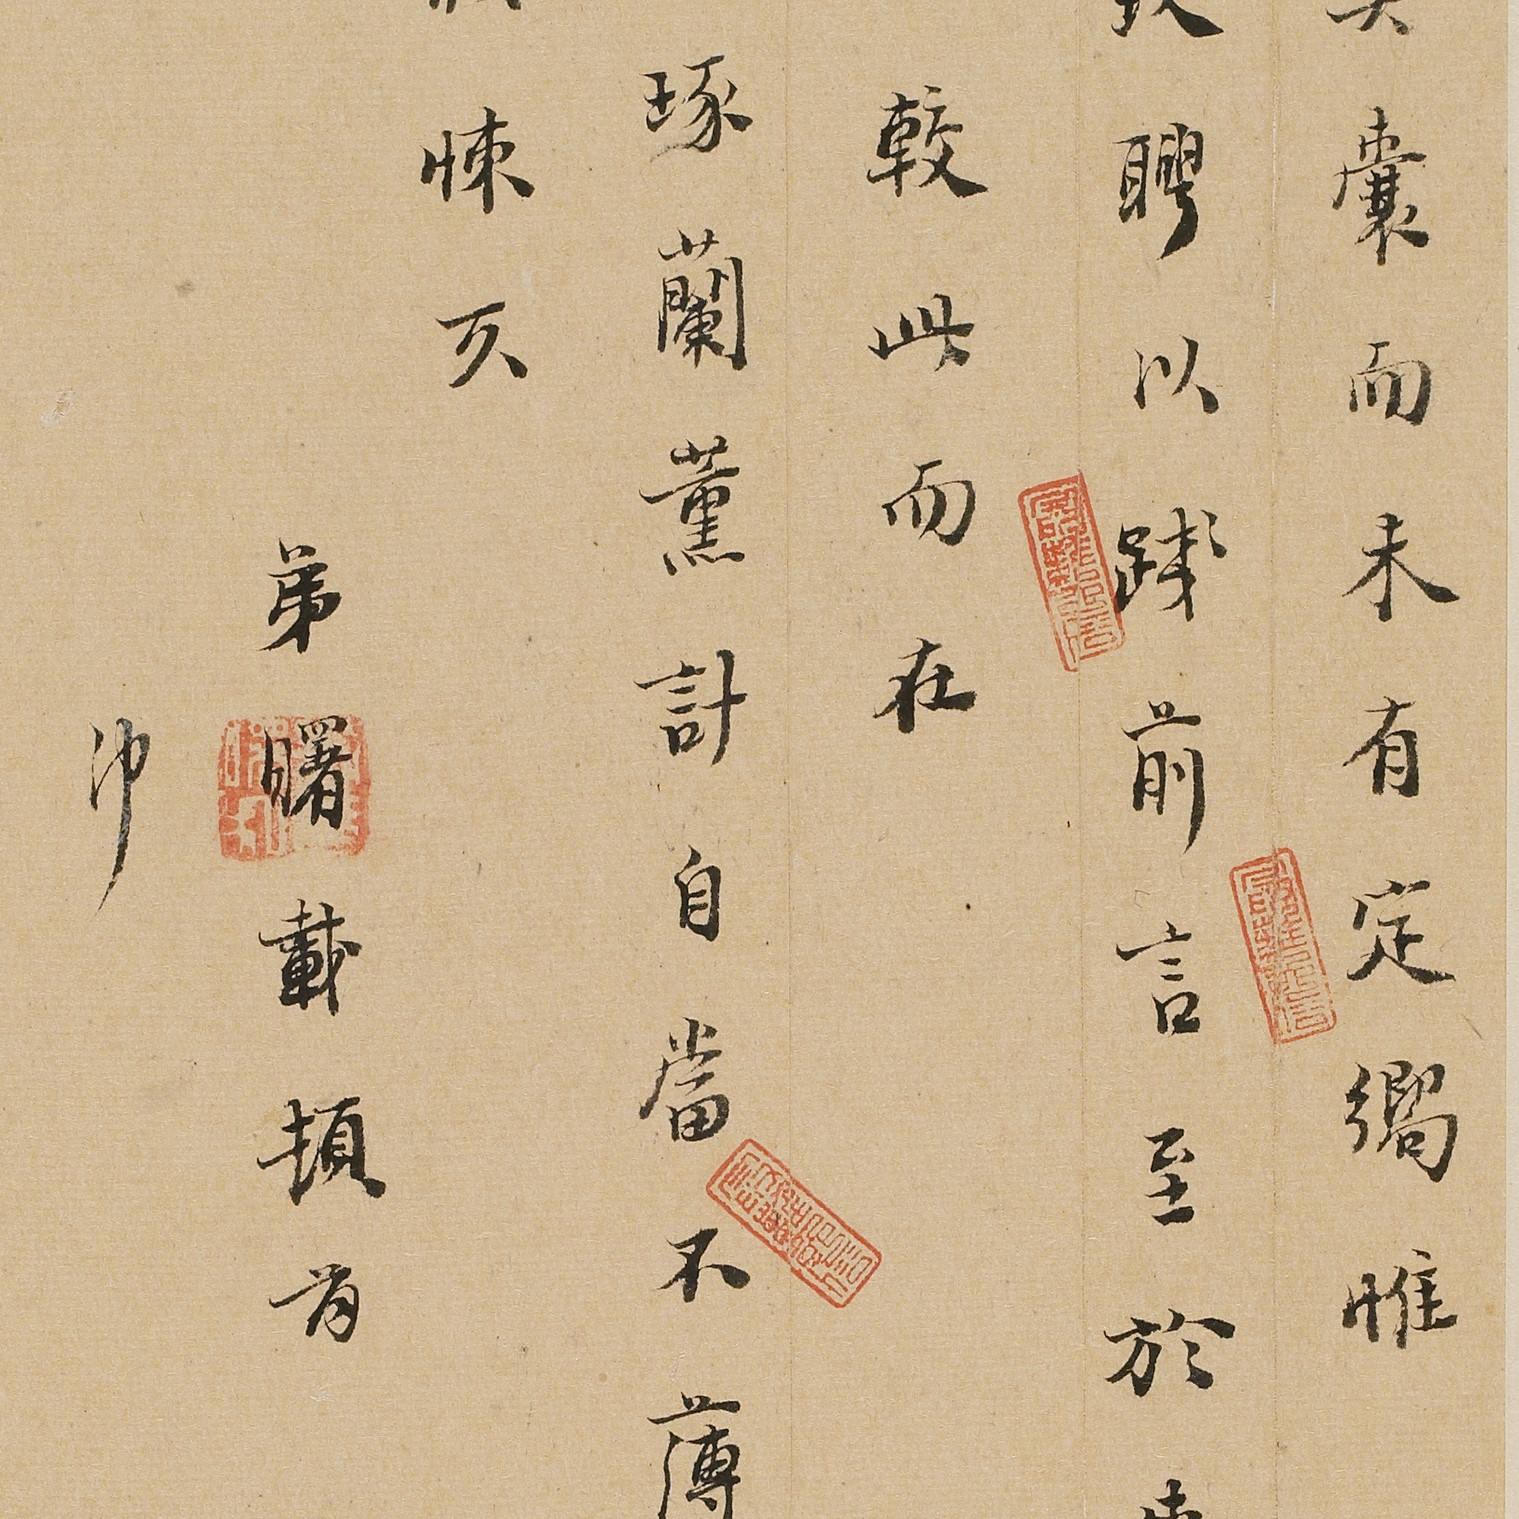 囊而未有定嚮惟
聘以踐前言至於
較此而在
琢蘭薰計自當不薄
悚仄
弟曙載頓首
冲